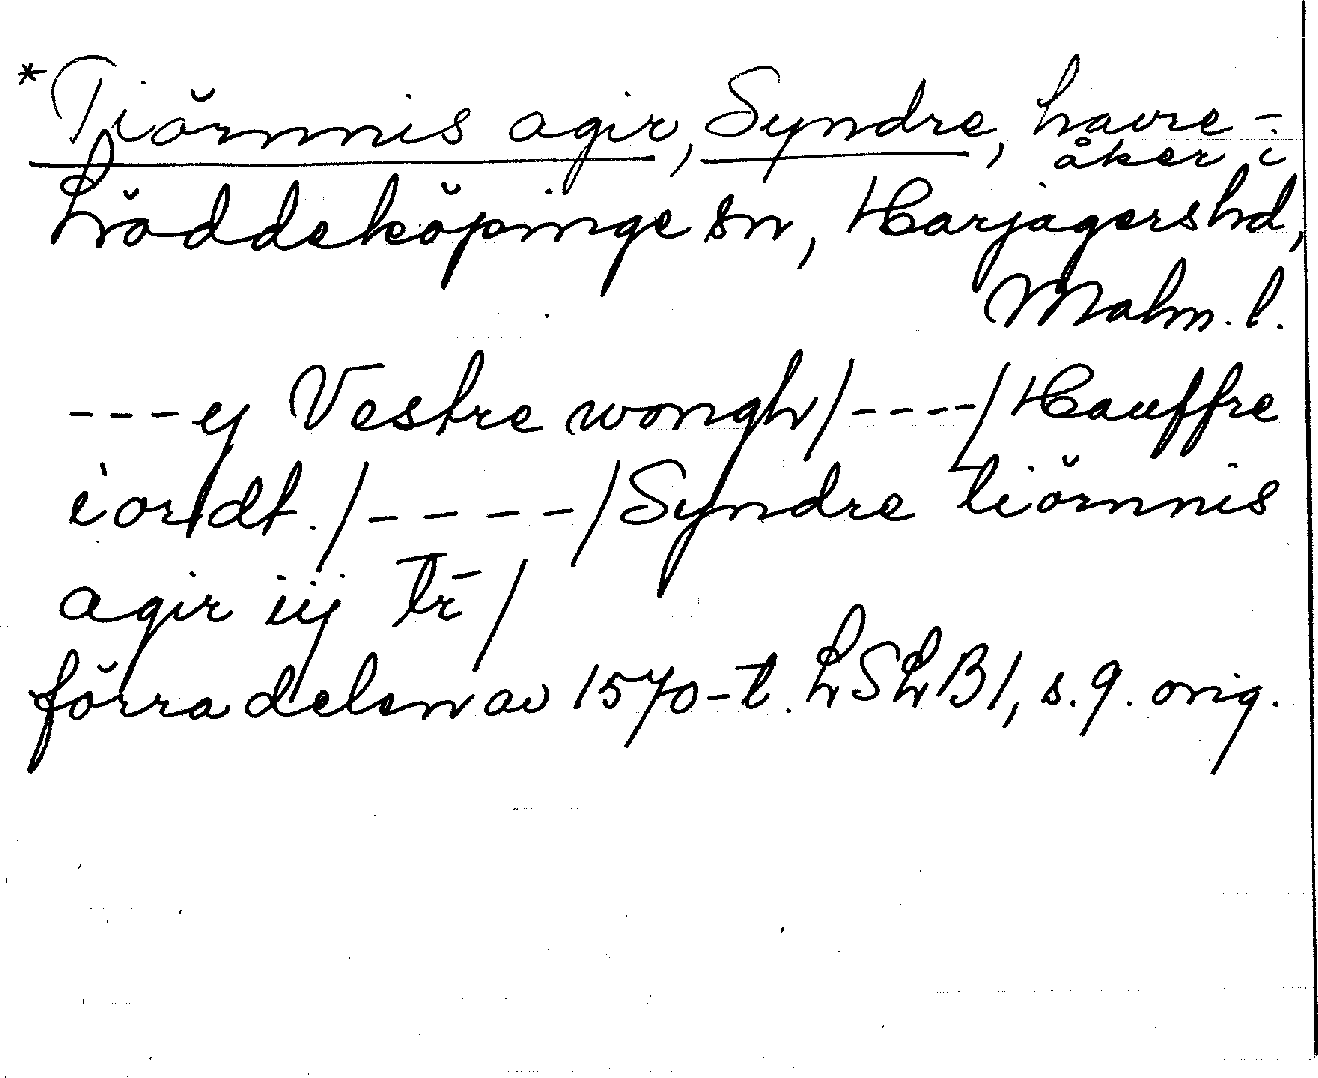 *Tiörnnis agir, Syndre, havre-
åker i
Löddeköpinge sn, Harjagers hd,
Malm. l.
---ej Vestre wongh/----/Hauffre
iordt./----/Syndre tiörnnis
agir iij tr̄/
förra delen av 1570-t. LSLB1, s. 9. orig.